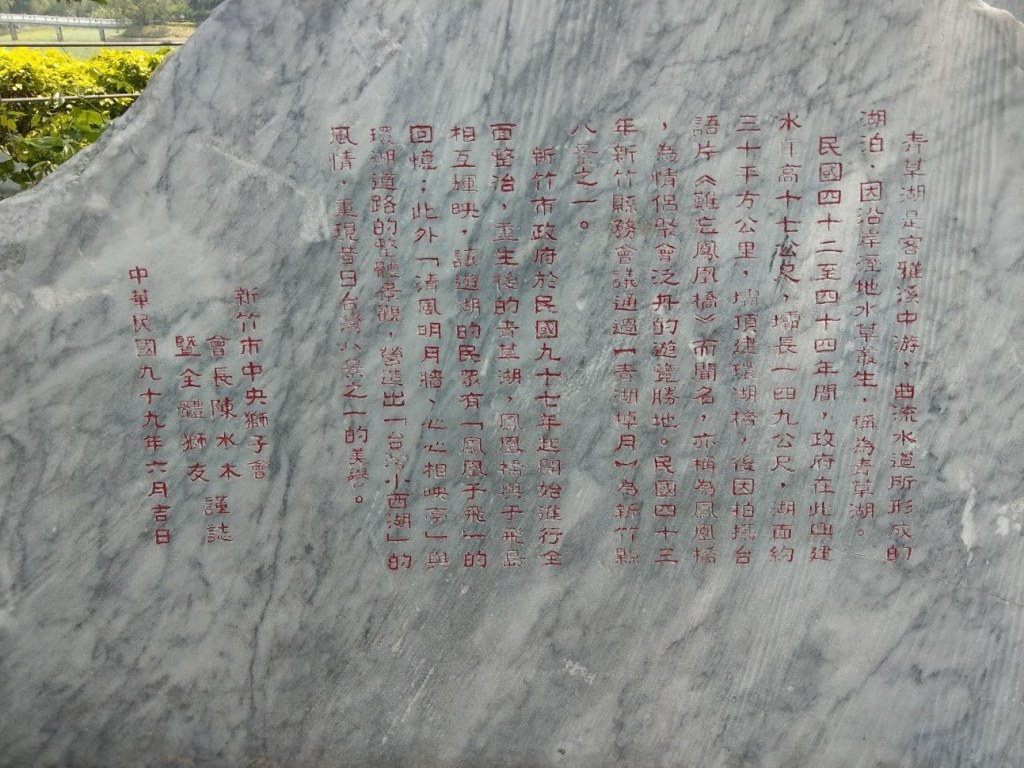 青草湖是客雅溪中游，曲流水道所形成的
湖泊，因沿岸溼地水草叢生，稱為青草湖。
民國四十二至四十四年間，政府在此興建
水庫高十七公尺，壩長一四九公尺，湖面約
三十平方公里，壩頂建環湖橋，後因拍攝台
語片《難忘鳳凰橋》而聞名，亦稱為鳳凰橋
，為情侶聚會泛舟的遊覽勝地。民國四十三
年新竹縣務會議通過【青湖掉月】為新竹縣
八景之一。
新竹市政府於民國九十七年起開始進行全
面整治，重生後的青草湖，鳳凰橋與于飛島
相互輝映，讓遊湖的民眾有「鳳凰于飛」的
回憶；此外「清風明月牆、心心相映亭」與
環湖道路的整體景觀，營造出「台灣小西湖」的
風情，重現昔日台灣八景之一的美譽。
新竹市中央獅子會
會長陳水木 謹誌
暨全體獅友
中華民國九十九年六月吉日